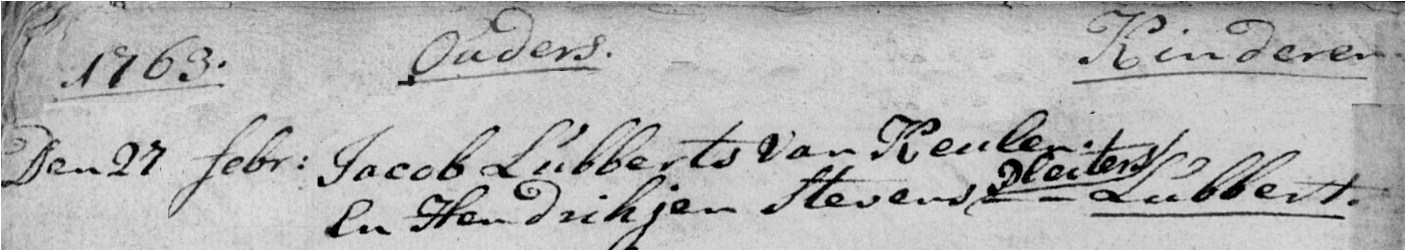 1763. Ouders. Kinderen
Den 27 febr: Jacob Lubberts van Keulen.
En Hendrikjen Stevens Lubbert.